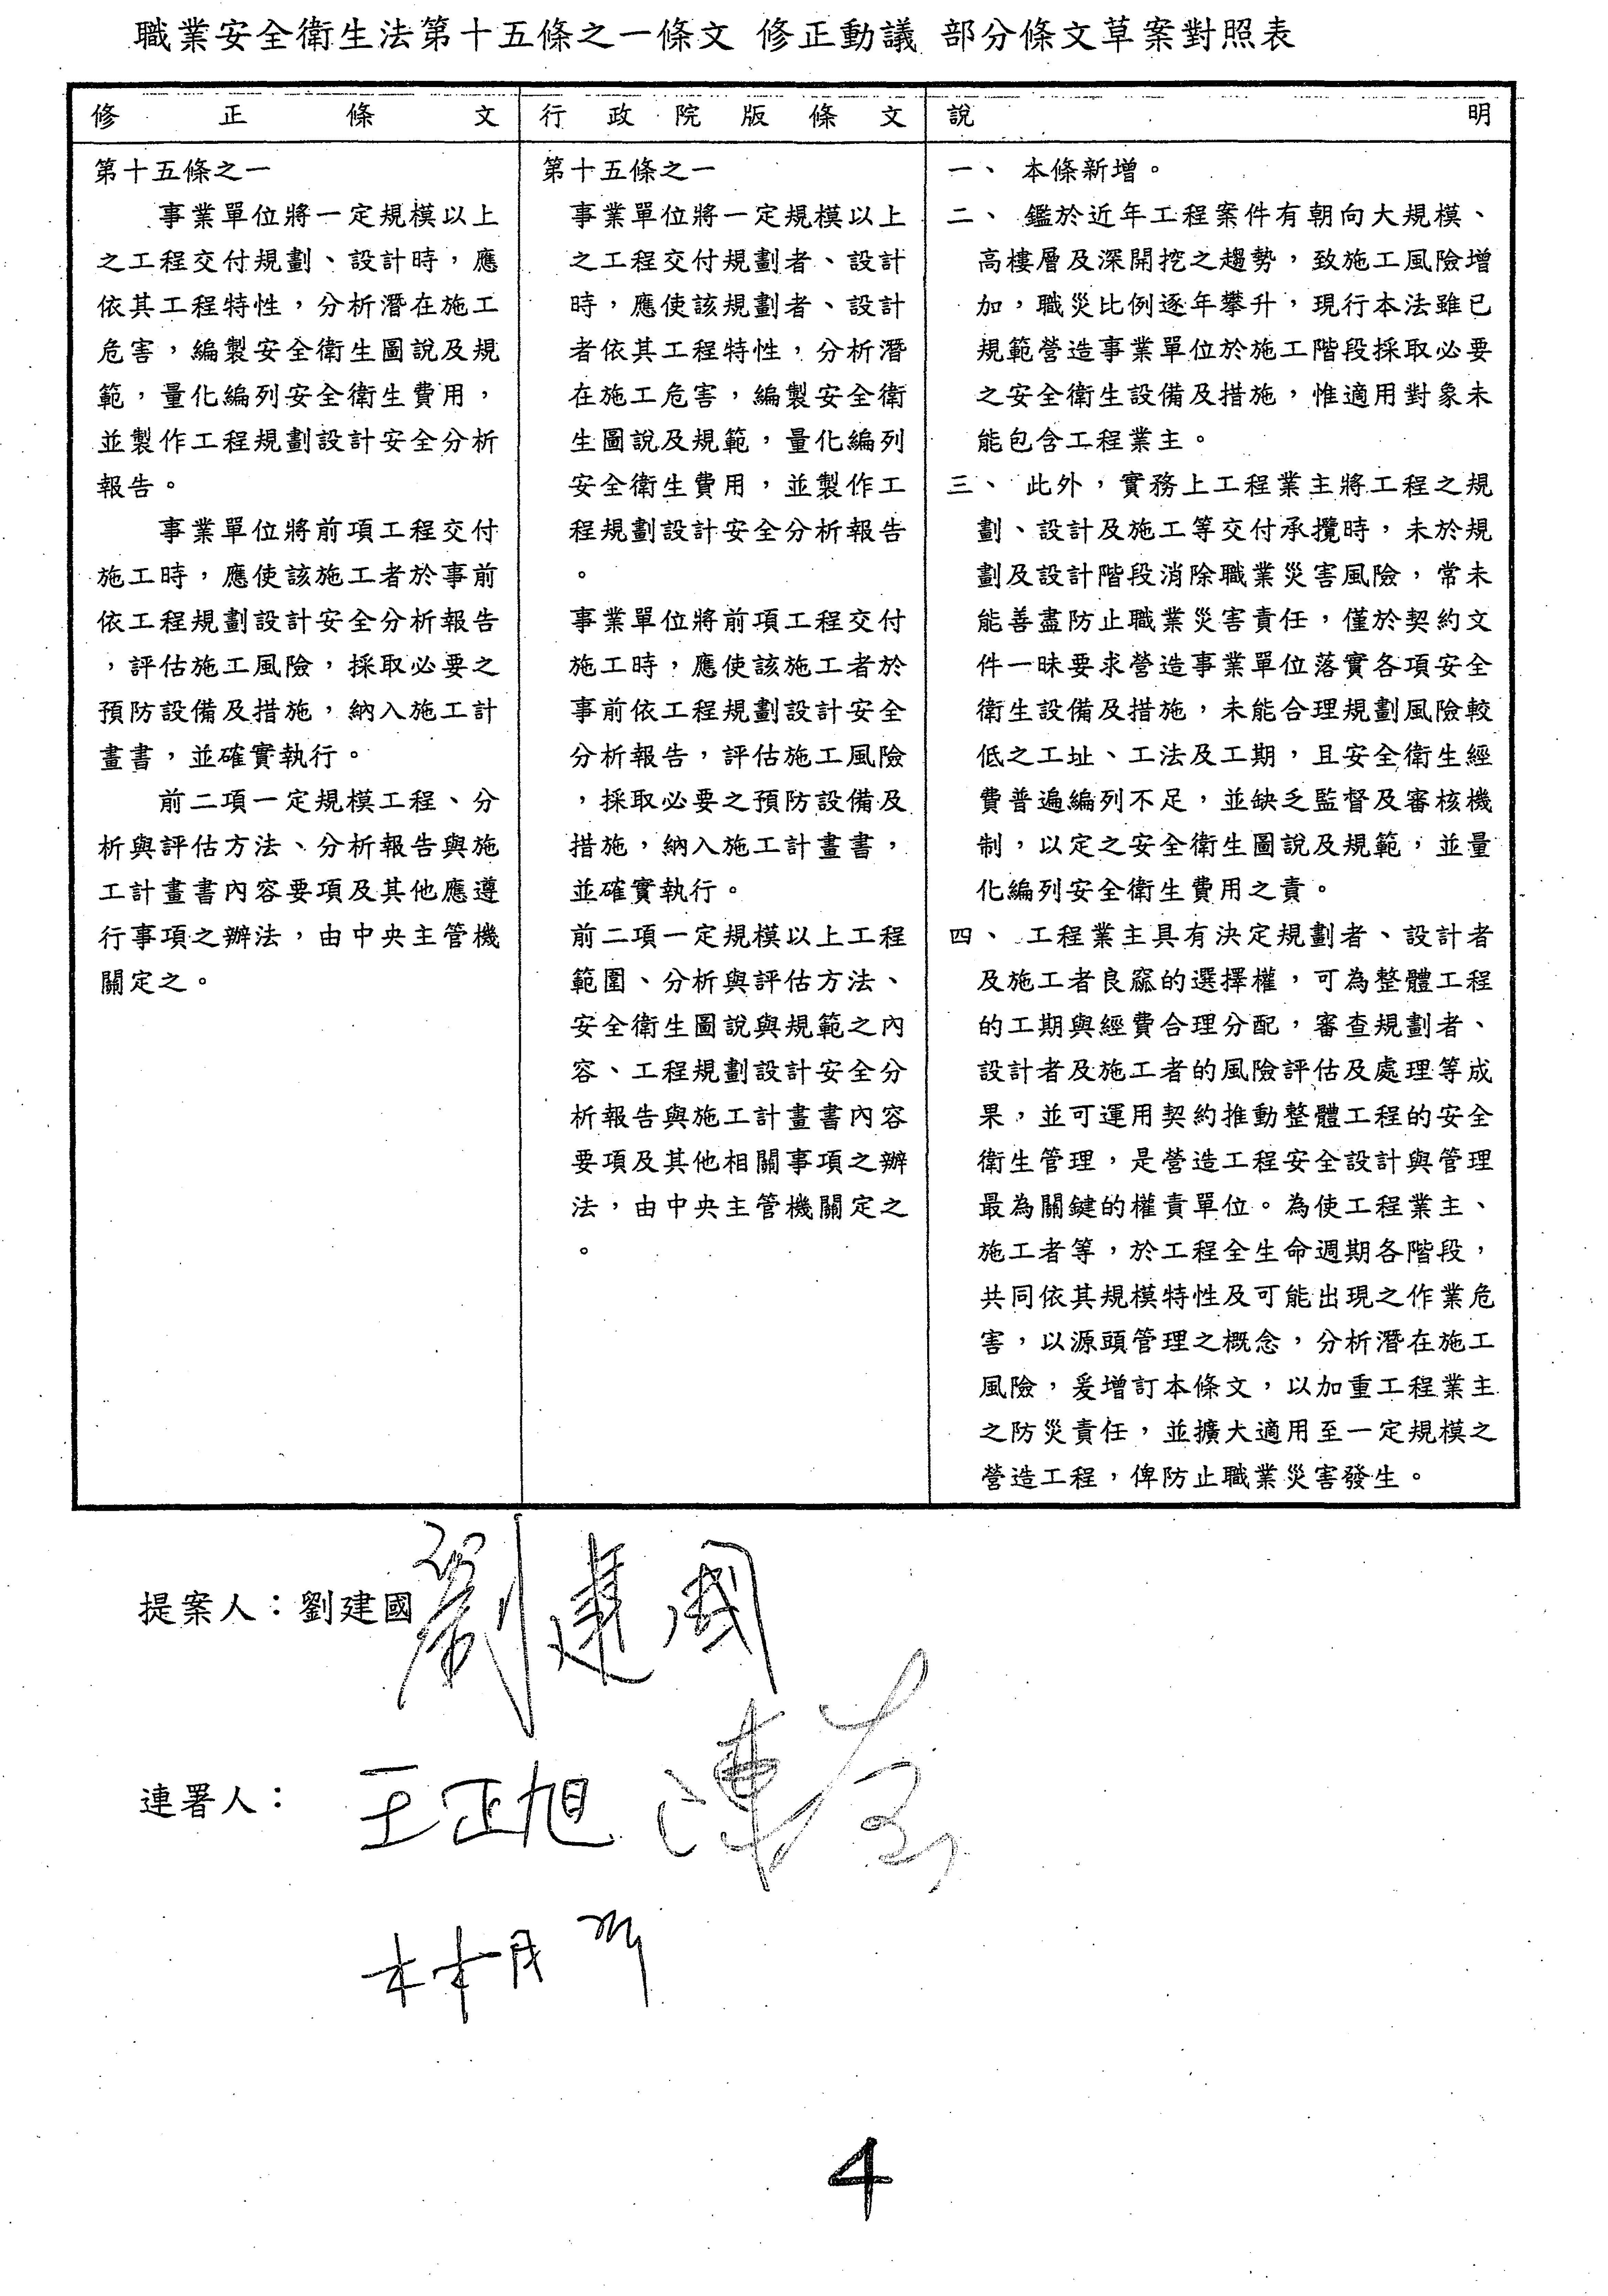 職業安全衛生法第十五條之一條文 修正動議 部分條文草案對照表
修正條文
第十五條之一
事業單位將一定規模以上
之工程交付規劃、設計時，應
依其工程特性，分析潛在施工
危害，編製安全衛生圖說及規
範，量化編列安全衛生費用，
並製作工程規劃設計安全分析
報告。
事業單位將前項工程交付
施工時，應使該施工者於事前
依工程規劃設計安全分析報告
，評估施工風險，採取必要之
預防設備及措施，納入施工計
畫書，並確實執行。
前二項一定規模工程、分
析與評估方法、分析報告與施
工計畫書內容要項及其他應遵
行事項之辦法，由中央主管機
關定之。
行政院版條文
第十五條之一
事業單位將一定規模以上
之工程交付規劃者、設計
時，應使該規劃者、設計
者依其工程特性，分析潛
在施工危害，編製安全衛
生圖說及規範，量化編列
安全衛生費用，並製作工
程規劃設計安全分析報告
。
事業單位將前項工程交付
施工時，應使該施工者於
事前依工程規劃設計安全
分析報告，評估施工風險
，採取必要之預防設備及
措施，納入施工計畫書，
並確實執行。
前二項一定規模以上工程
範圍、分析與評估方法、
安全衛生圖說與規範之內
容、工程規劃設計安全分
析報告與施工計畫書內容
要項及其他相關事項之辦
法，由中央主管機關定之
。
說明
一、 本條新增。
二、 鑑於近年工程案件有朝向大規模、
高樓層及深開挖之趨勢，致施工風險增
加，職災比例逐年攀升，現行本法雖已
規範營造事業單位於施工階段採取必要
之安全衛生設備及措施，惟適用對象未
能包含工程業主。
三、 此外，實務上工程業主將工程之規
劃、設計及施工等交付承攬時，未於規
劃及設計階段消除職業災害風險，常未
能善盡防止職業災害責任，僅於契約文
件一昧要求營造事業單位落實各項安全
衛生設備及措施，未能合理規劃風險較
低之工址、工法及工期，且安全衛生經
費普遍編列不足，並缺乏監督及審核機
制，以定之安全衛生圖說及規範，並量
化編列安全衛生費用之責。
四、 工程業主具有決定規劃者、設計者
及施工者良窳的選擇權，可為整體工程
的工期與經費合理分配，審查規劃者、
設計者及施工者的風險評估及處理等成
果，並可運用契約推動整體工程的安全
衛生管理，是營造工程安全設計與管理
最為關鍵的權責單位。為使工程業主、
施工者等，於工程全生命週期各階段，
共同依其規模特性及可能出現之作業危
害，以源頭管理之概念，分析潛在施工
風險，爰增訂本條文，以加重工程業主
之防災責任，並擴大適用至一定規模之
營造工程，俾防止職業災害發生。
提案人：劉建國 劉建國
連署人： 王正旭
4